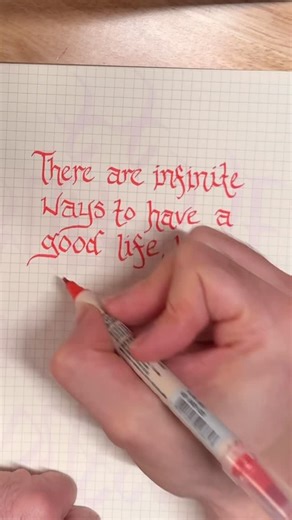 There are infinite
ways to have a
good life.